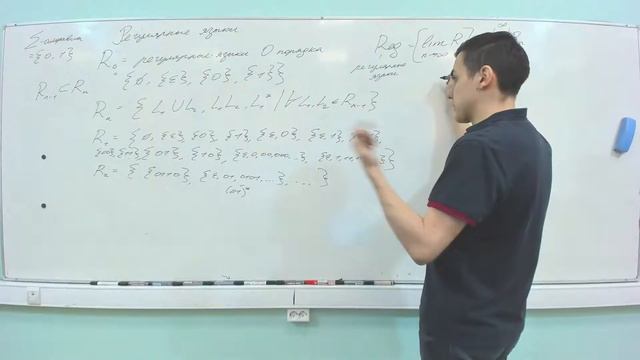 Σ-алфавит
={0, 1}
Регулярные языки
R₀ = регулярные языки 0 порядка
{∅, {ε}, {0}, {1}}
Rₙ₋₁ ⊂ Rₙ
Rₙ = {L₁∪L₂, L₁L₂, L₁* | ∀L₁,L₂ ∈ Rₙ₋₁}
R₁ = {∅, {ε}, {0}, {1}, {ε,0}, {ε,1},
{00}, {11}, {01}, {10}, {ε,0,00,000...}, {ε,1,11,
R₂ = { {0110}, {ε,01,0101,...}, ... }
(01)*
Reg = {lim R
регулярные
языки